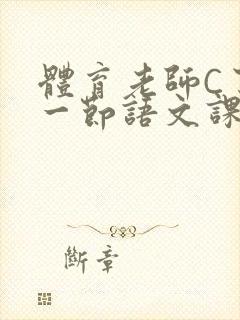 體育老師C
一節語文課
斷章